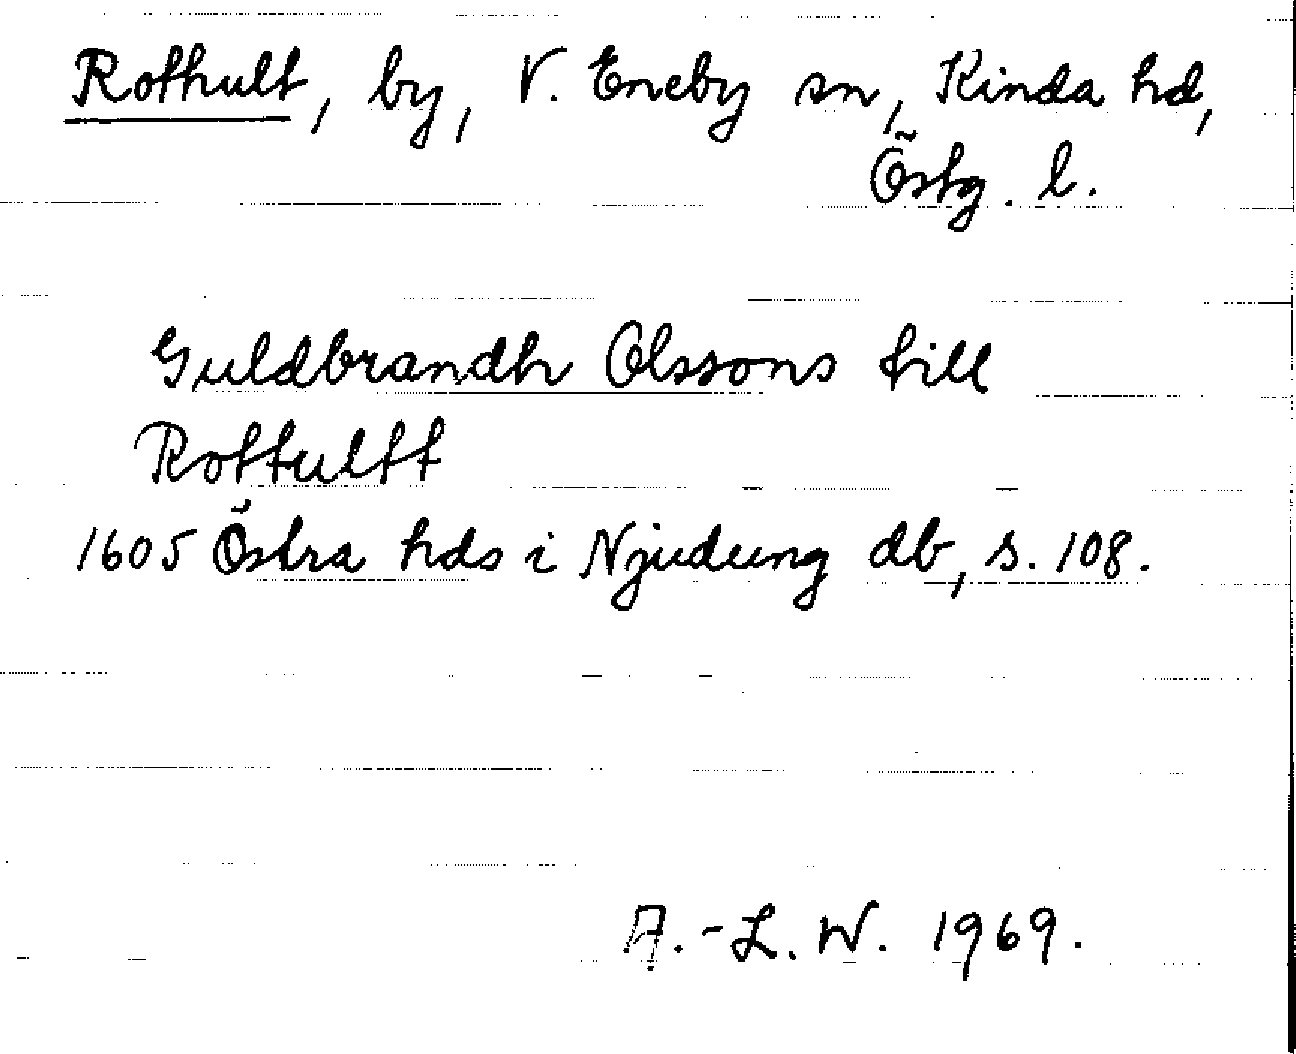 Rothult, by, V. Eneby sn, Kinda hd,
Östg. l.
Guldbrandh Olssons till
Rottultt
1605 Östra hds i Njudung db, s. 108.
A.-L. W. 1969.